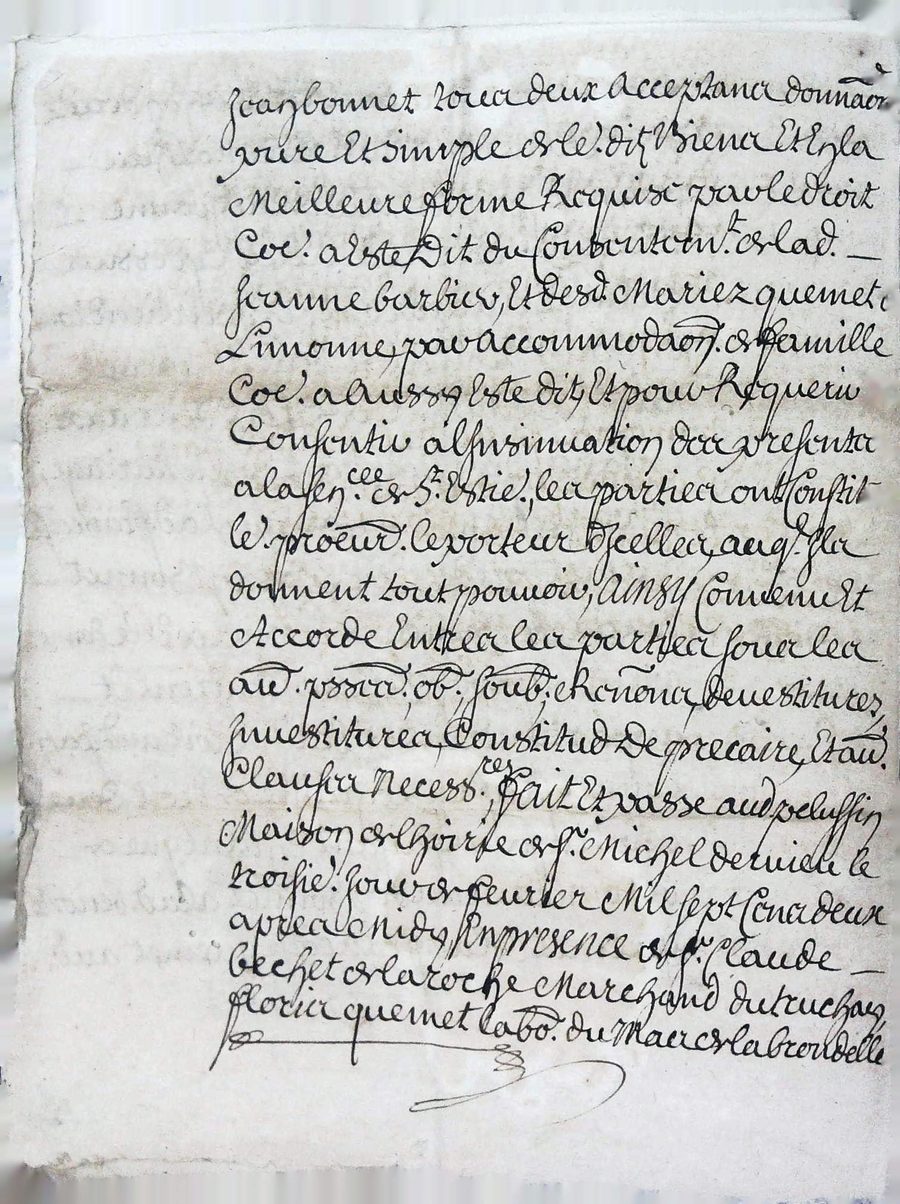 Jean bonnet tous deux Acceptans donnaon
pure Et simple de le. dit Biens Et En la
Meilleure forme Requise par le droit
Coe. a Este Dit du Consentemt. de lad. _
Jeanne barbier, Et desd. Mariez quemet
Limonne, par accommodaon. de famille
Coe. a Aussy Este dit, Et pour Requerir
Consentir a Insinuation des presentes
a la sencee. de St. Estie., les parties ont Constit
le. procur. le porteur d'Icelles, auql. Ils
donnent tout pouvoir, Ainsy Convenu Et
Accorde Entres les parties sous les
au. pssces., ob., soub., Renons, devestitures,
Investitures, Constitud De precaire, Et au.
Clauses Necessres., fait Et passe aud pelussin
Maison de l'hoirie de sr. Michel dervieu le
troisie. Jour de fevrier Mil sept Cens deux
apres Midy, En presence de sr. Claude _
bechet de la roche Marchand du truchay,
floris quemet labo. du Mas de la brondelle